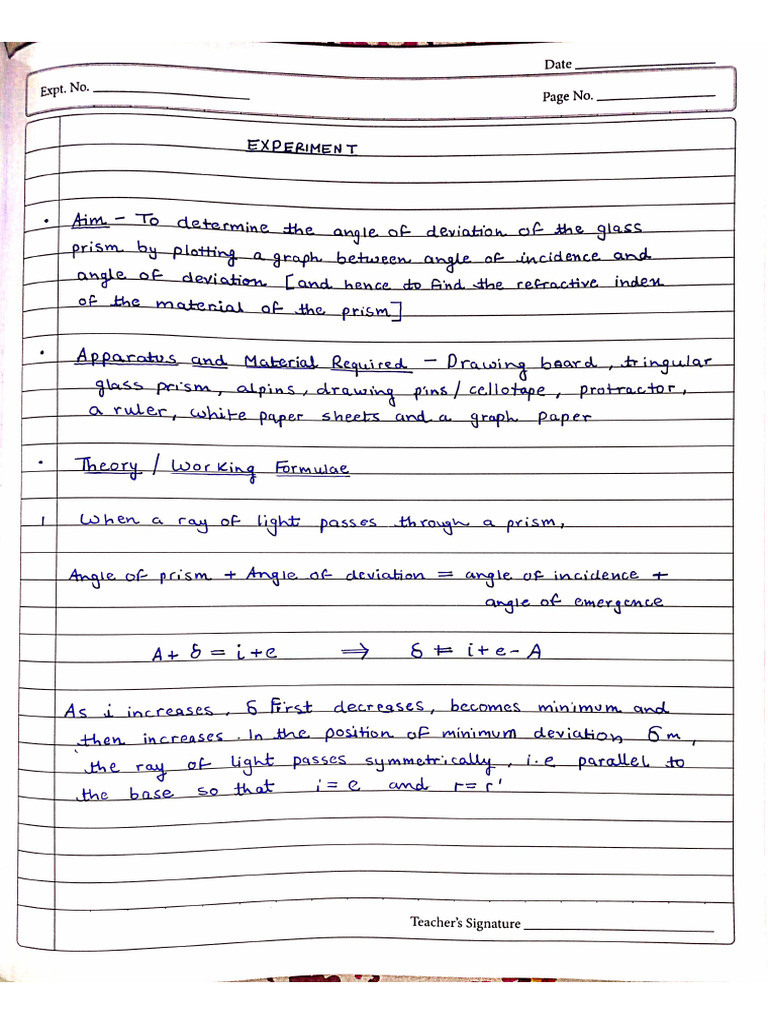 Date
Expt. No.
Page No.
EXPERIMENT
• Aim - To determine the angle of deviation of the glass
prism by plotting a graph between angle of incidence and
angle of deviation [and hence to find the refractive index
of the material of the prism]
• Apparatus and Material Required - Drawing board, tringular
glass prism, alpins, drawing pins / cellotape, protractor,
a ruler, white paper sheets and a graph paper
• Theory / Working Formulae
1 When a ray of light passes through a prism,
Angle of prism + Angle of deviation = angle of incidence +
angle of emergence
A + δ = i + e ⟹ δ = i + e - A
As i increases, δ first decreases, becomes minimum and
then increases. In the position of minimum deviation, δm,
the ray of light passes symmetrically, i.e parallel to
the base so that i = e and r = r'
Teacher's Signature